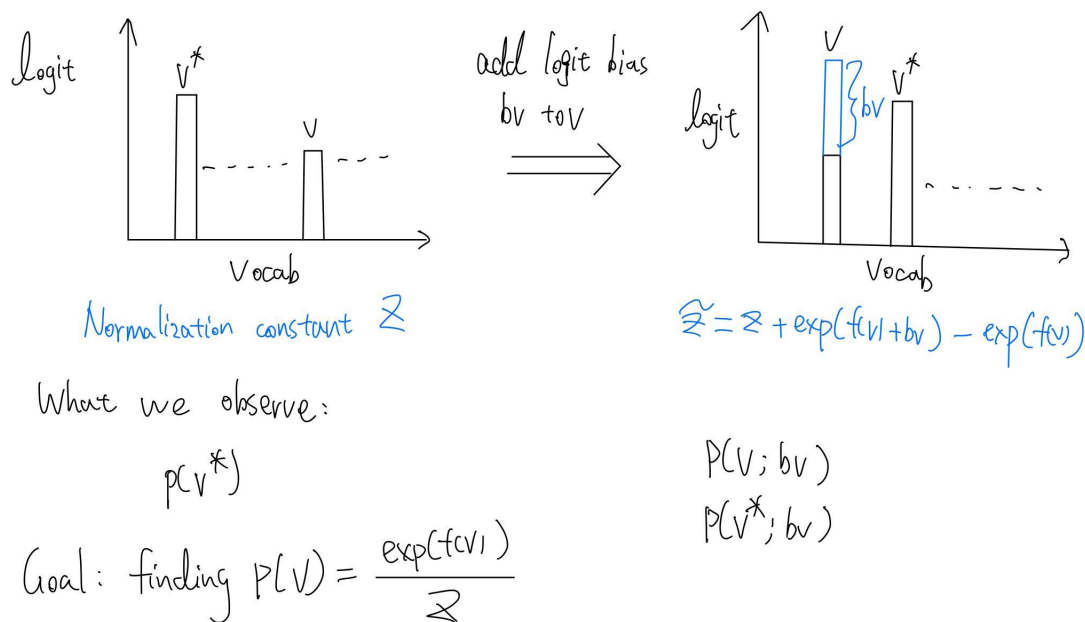 logit
V*
V
Vocab
Normalization constant Z
add logit bias
bv to v
logit
V
bv
V*
Vocab
Z̃ = Z + exp(f(v)+bv) - exp(f(v))
What we observe:
p(v*)
P(V; bv)
P(V*; bv)
Goal: finding P(V) = exp(f(v)) / Z